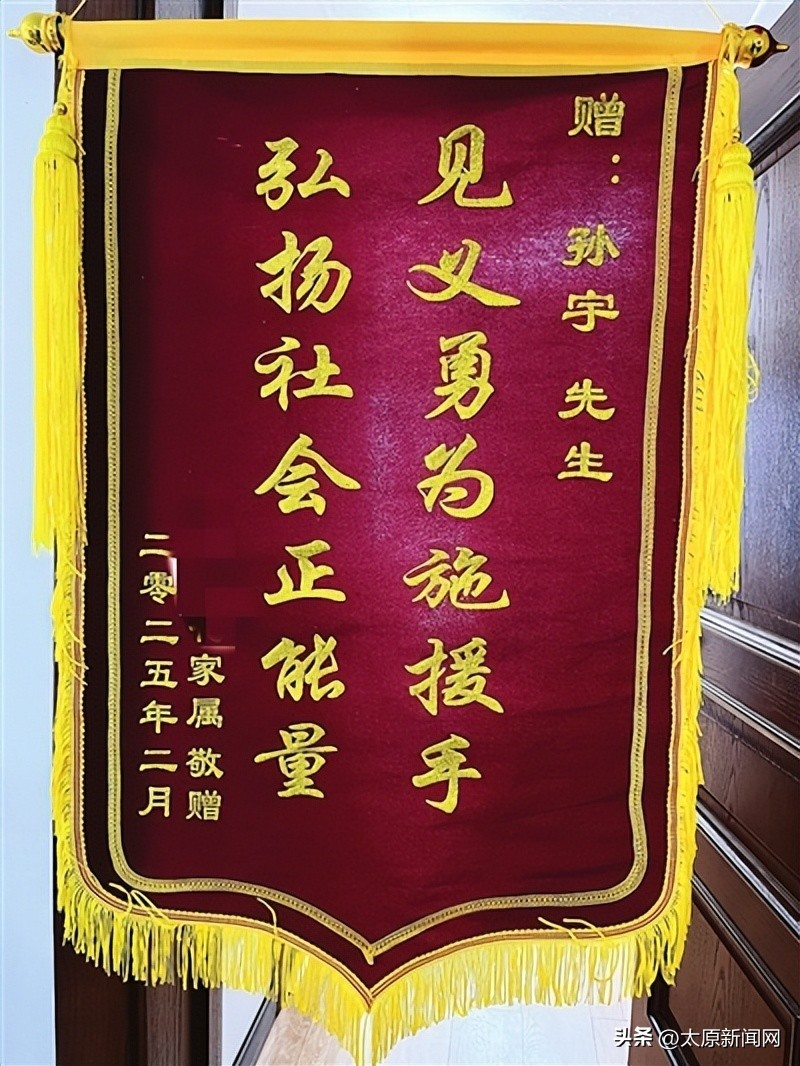 赠：孙宇 先生
见义勇为施援手
弘扬社会正能量
家属敬赠
二零二五年二月
头条 @太原新闻网